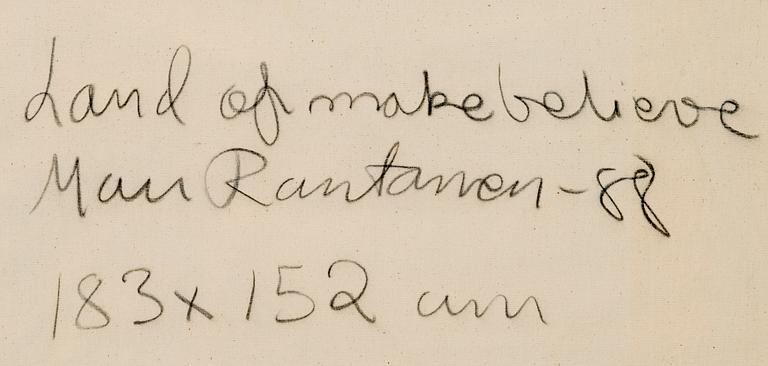 Land of makebelieve
Mari Rantanen -88
183x152 cm